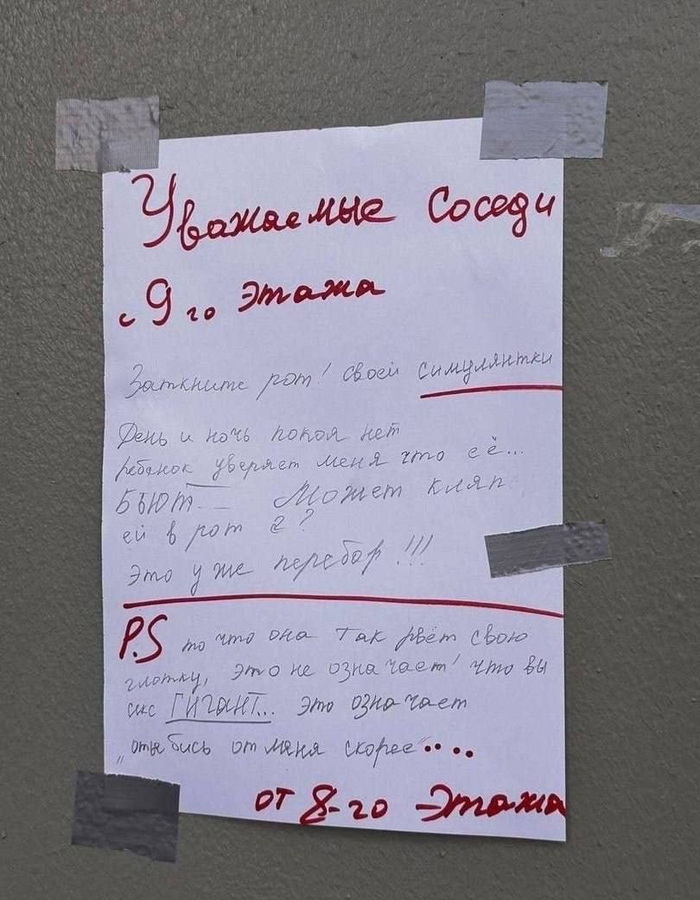 Уважаемые соседи
с 9го этажа
Заткните рот! своей симулянтки
День и ночь покоя нет
ребёнок уверяет меня что её...
БЬЮТ... Может кляп
ей в рот а?
Это уже перебор!!!
P.S то что она так рвёт свою
глотку, это не означает! что вы
секс ГИГАНТ... это означает
"отъебись от меня скорее"....
от 8-го этажа